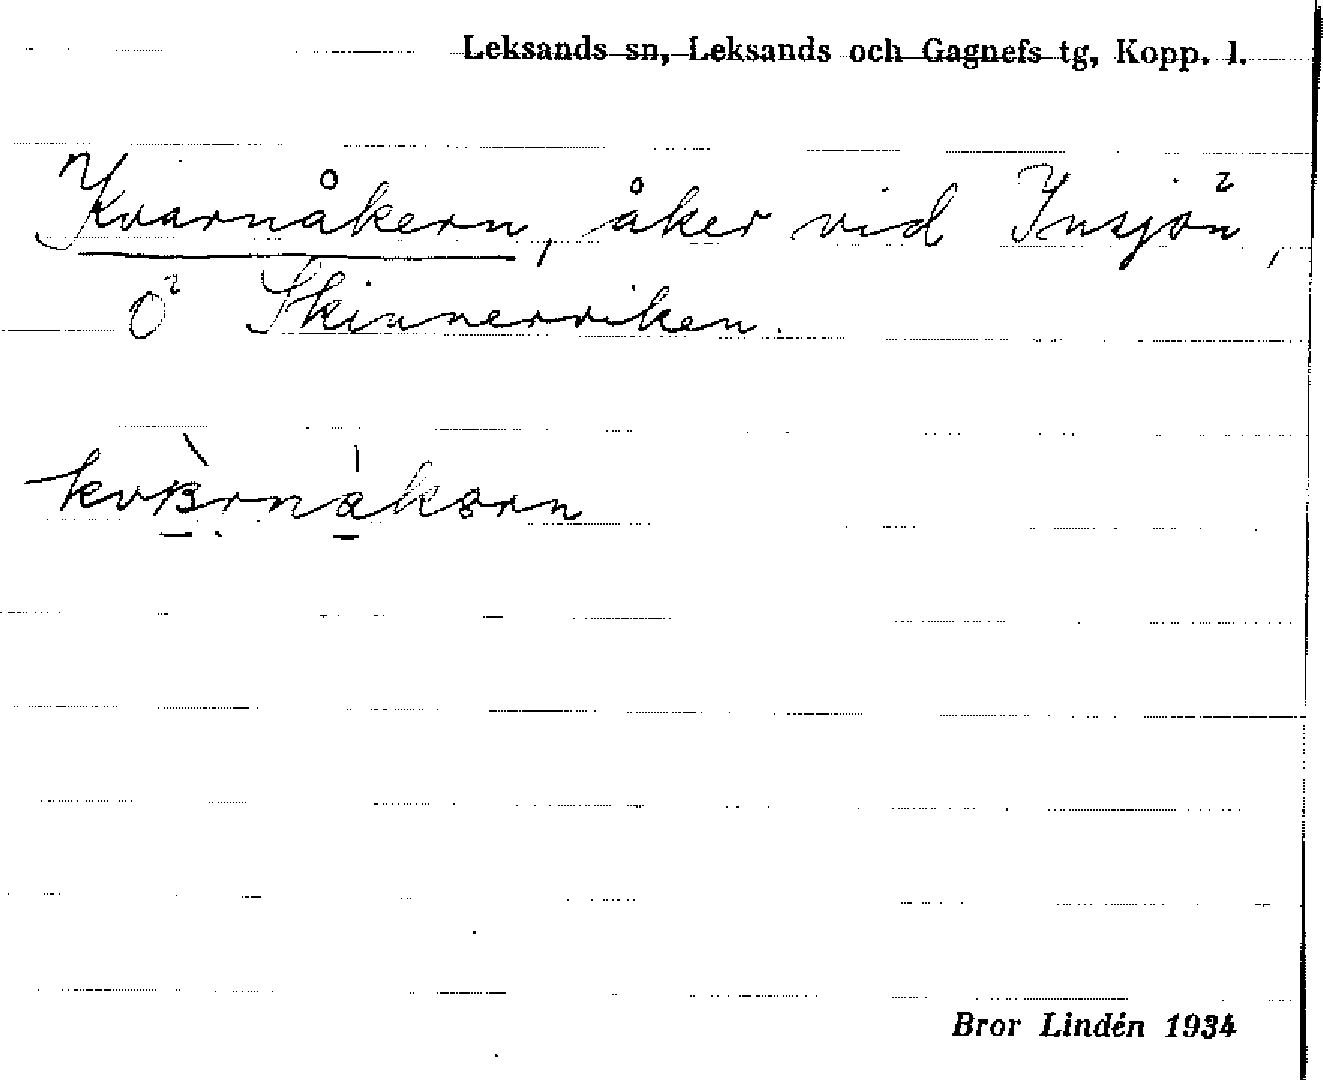 Leksands sn, Leksands och Gagnefs tg, Kopp. l.
Kvarnåkern, åker vid Insjön,
Ö Skinnerviken.
Bror Lindén 1934